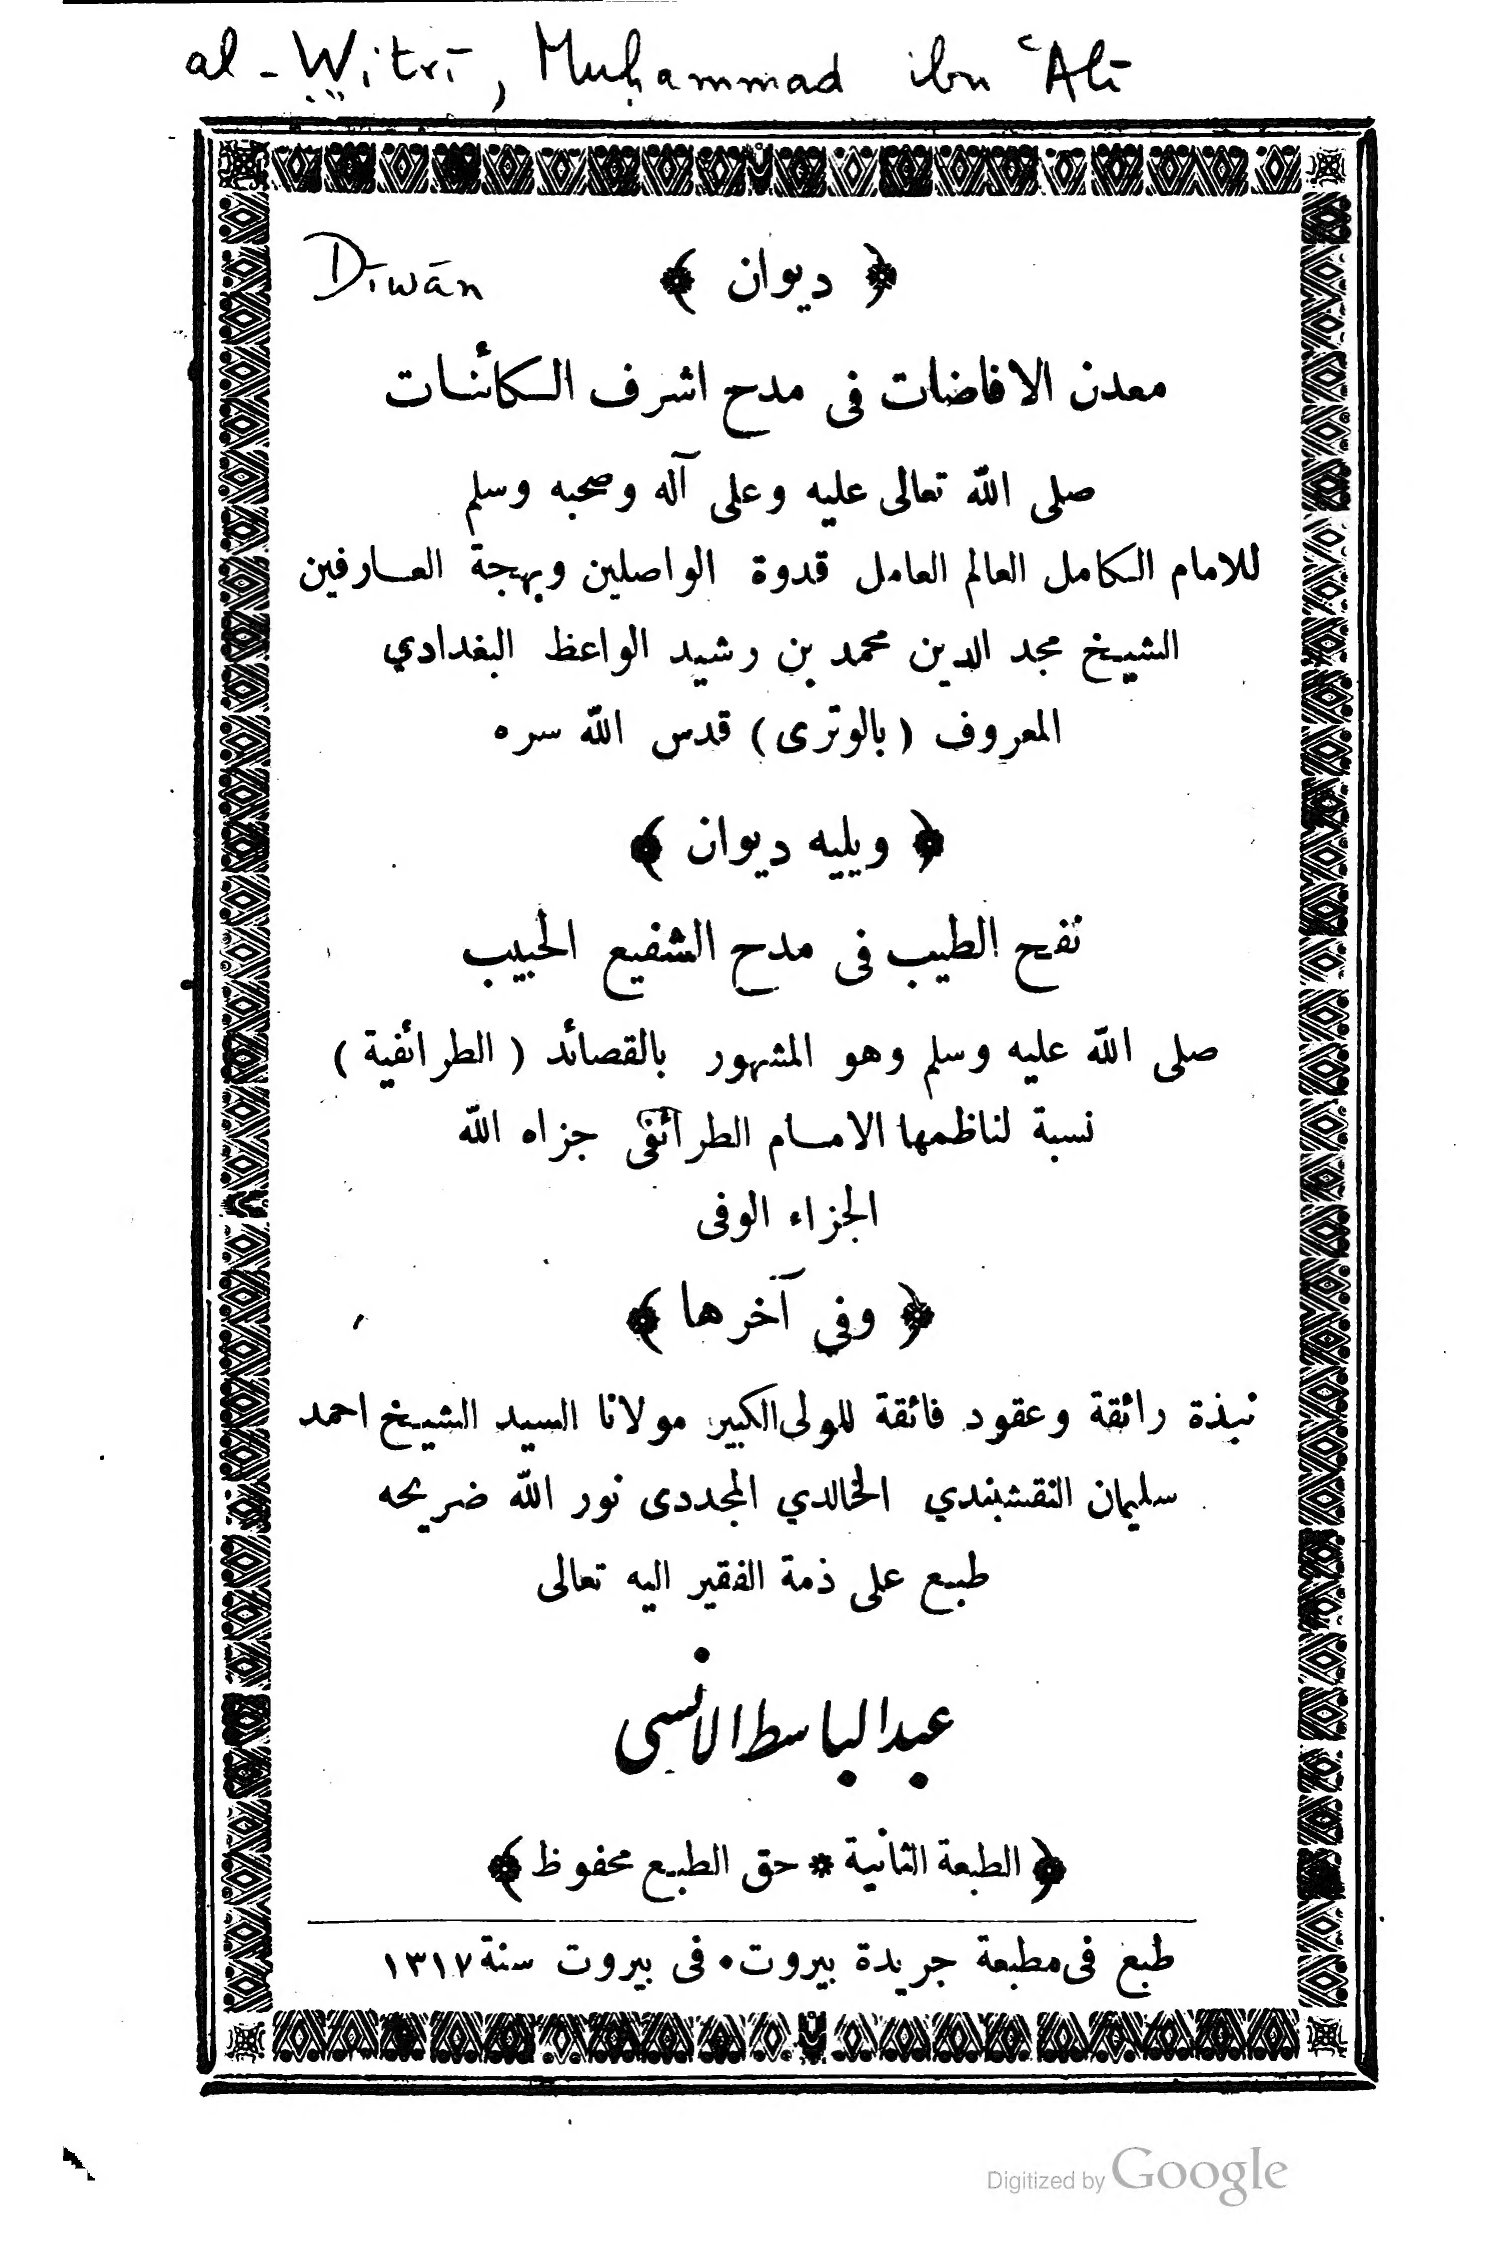 al-Witrī, Muḥammad ibn ʿAlī
﴿ ديوان ﴾
Dīwān
معدن الافاضات فى مدح اشرف الكائنات
صلى الله تعالى عليه وعلى آله وصحبه وسلم
للامام الكامل العالم العامل قدوة الواصلين وبهجة العارفين
الشيخ مجد الدين محمد بن رشيد الواعظ البغدادي
المعروف (بالوترى) قدس الله سره
﴿ ويليه ديوان ﴾
نفح الطيب فى مدح الشفيع الحبيب
صلى الله عليه وسلم وهو المشهور بالقصائد (الطرائفية)
نسبة لناظمها الامام الطرائفى جزاه الله
الجزاء الوفى
﴿ وفي آخرها ﴾
نبذة رائقة وعقود فائقة للولى الكبير مولانا السيد الشيخ احمد
سليمان النقشبندي الخالدي المجددى نور الله ضريحه
طبع على ذمة الفقير اليه تعالى
عبد الباسط الانسى
﴿ الطبعة الثانية * حق الطبع محفوظ ﴾
طبع فى مطبعة جريدة بيروت • فى بيروت سنة ١٣١٧
Digitized by Google